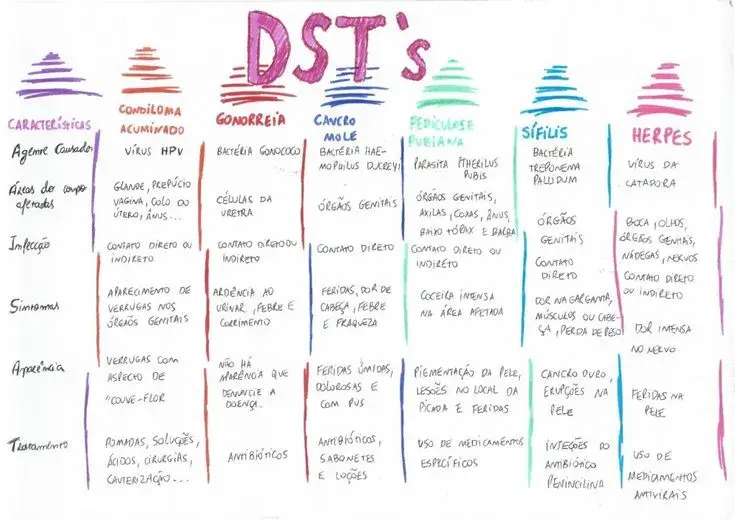 DST's
CARACTERÍSTICAS
CONDILOMA
ACUMINADO
GONORREIA
CANCRO
MOLE
PEDICULOSE
PUBIANA
SÍFILIS
HERPES
Agente Causador
VÍRUS HPV
BACTÉRIA GONOCOCO
BACTÉRIA HAE-
MOPHILUS DUCREYI
PARASITA PTHERILUS
PUBIS
BACTÉRIA
TREPONEMA
PALLIDUM
VÍRUS DA
CATAPORA
Áreas do corpo
afetadas
GLANDE, PREPÚCIO
VAGINA, COLO DO
ÚTERO, ÂNUS...
CÉLULAS DA
URETRA
ÓRGÃOS GENITAIS
ÓRGÃOS GENITAIS,
AXILAS, COXAS, ÂNUS,
BAIXO TÓRAX E BARBA
ÓRGÃOS
GENITAIS
BOCA, OLHOS,
ÓRGÃOS GENITAIS,
NÁDEGAS, NERVOS
Infecção
CONTATO DIRETO OU
INDIRETO
CONTATO DIRETO OU
INDIRETO
CONTATO DIRETO
CONTATO DIRETO OU
INDIRETO
CONTATO
DIRETO
CONTATO DIRETO
OU INDIRETO
Sintomas
APARECIMENTO DE
VERRUGAS NOS
ÓRGÃOS GENITAIS
ARDÊNCIA AO
URINAR, FEBRE E
CORRIMENTO
FERIDAS, DOR DE
CABEÇA, FEBRE
E FRAQUEZA
COCEIRA INTENSA
NA ÁREA AFETADA
DOR NA GARGANTA,
MÚSCULOS OU CABE-
ÇA, PERDA DE PESO
DOR INTENSA
NO NERVO
Aparência
VERRUGAS COM
ASPECTO DE
"COUVE-FLOR
NÃO HÁ
APARÊNCIA QUE
DENUNCIE A
DOENÇA.
FERIDAS ÚMIDAS,
DOLOROSAS E
COM PUS
PIGMENTAÇÃO DA PELE,
LESÕES NO LOCAL DA
PICADA E FERIDAS
CANCRO DURO,
ERUPÇÕES NA
PELE
FERIDAS NA
PELE
Tratamento
POMADAS, SOLUÇÕES,
ÁCIDOS, CIRURGIAS,
CAUTERIZAÇÃO...
ANTIBIÓTICOS
ANTIBIÓTICOS,
SABONETES
E LOÇÕES
USO DE MEDICAMENTOS
ESPECÍFICOS
INJEÇÕES DO
ANTIBIÓTICO
PENINCILINA
USO DE
MEDICAMENTOS
ANTIVIRAIS